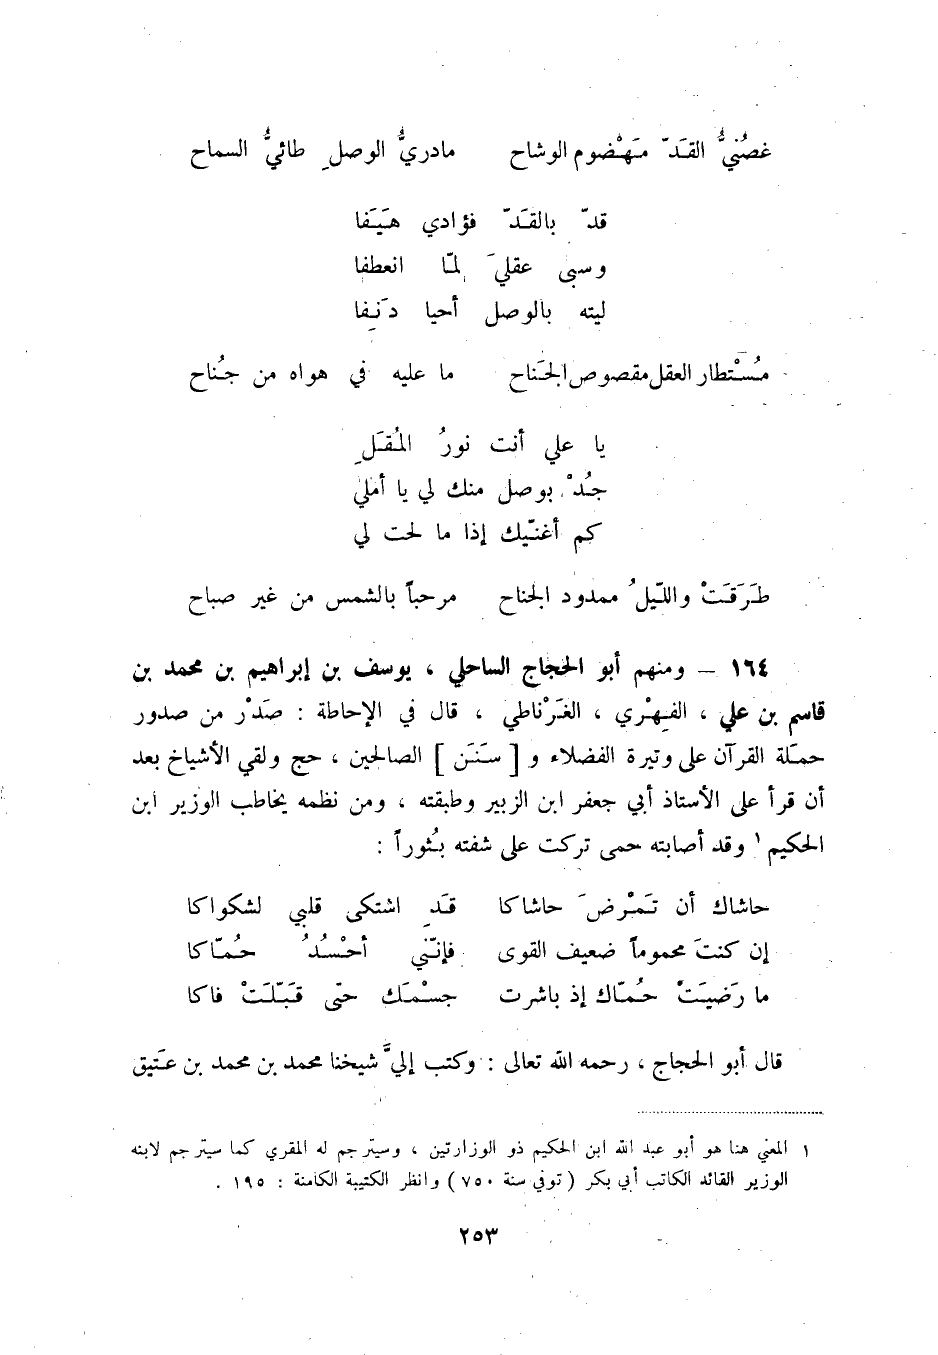 غصُنيُّ القَدّ مَهْضوم الوشاح مادريُّ الوصلِ طائيُّ السماح
قدّ بالقَدّ فؤادي هَيَفا
وسبى عقليَ لمّا انعطفا
ليته بالوصل أحيا دَنِفا
مُسْتطار العقل مقصوص الجَناح ما عليه في هواه من جُناح
يا علي أنت نورُ المُقَلِ
جُدْ بوصل منك لي يا أملي
كم أغنّيك إذا ما لحت لي
طَرَقَتْ والليّلُ ممدود الجناح مرحباً بالشمس من غير صباح
١٦٤ – ومنهم أبو الحجاج الساحلي ، يوسف بن إبراهيم بن محمد بن
قاسم بن علي ، الفِهْري ، الغَرْناطي ، قال في الإحاطة : صَدْر من صدور
حمَلة القرآن على وتيرة الفضلاء و [ سَنَن ] الصالحين ، حج ولقي الأشياخ بعد
أن قرأ على الأستاذ أبي جعفر ابن الزبير وطبقته ، ومن نظمه يخاطب الوزير ابن
الحكيم ١ وقد أصابته حمى تركت على شفته بُثوراً :
حاشاك أن تَمْرضَ حاشاكا قَدِ اشتكى قلبي لشكواكا
إن كنتَ محموماً ضعيف القوى فإنّني أحْسُدُ حُمّاكا
ما رَضيَتْ حُمّاك إذ باشرت جسْمَك حتى قَبّلَتْ فاكا
قال أبو الحجاج ، رحمه الله تعالى : وكتب إليَّ شيخنا محمد بن محمد بن عَتيق
١ المعني هنا هو أبو عبد الله ابن الحكيم ذو الوزارتين ، وسيترجم له المقري كما سيترجم لابنه
الوزير القائد الكاتب أبي بكر ( توفي سنة ٧٥٠ ) وانظر الكتيبة الكامنة : ١٩٥ .
٢٥٣